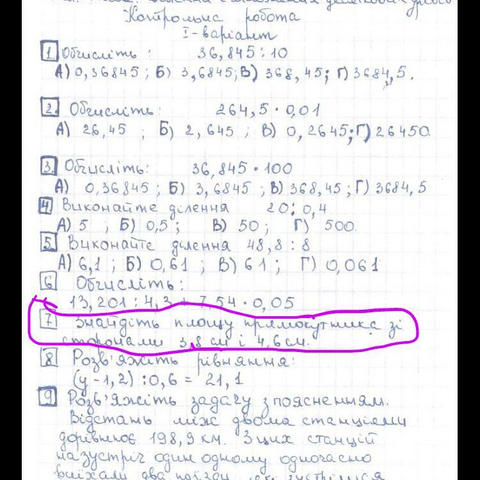 Контрольна робота
I-варіант
1 Обчисліть: 36,845:10
А) 0,36845; Б) 3,6845; В) 368,45; Г) 3684,5.
2. Обчисліть: 264,5 · 0,01
А) 26,45; Б) 2,645; В) 0,2645; Г) 26450
3. Обчисліть: 36,845 · 100
А) 0,36845; Б) 3,6845; В) 368,45; Г) 3684,5
4 Виконайте ділення 20:0,4
А) 5; Б) 0,5; В) 50; Г) 500.
5 Виконайте ділення 48,8:8
А) 6,1; Б) 0,61; В) 61; Г) 0,061
6 Обчисліть:
13,201 : 4,3 + 7,54 · 0,05
7 Знайдіть площу прямокутника зі
сторонами 3,8 см і 4,6 см.
8 Розв'яжіть рівняння:
(y-1,2):0,6 = 21,1
9 Розв'яжіть задачу з поясненням.
Відстань між двома станціями
дорівнює 198,9 км. З цих станцій
назустріч один одному одночасно
виїхали два поїзди